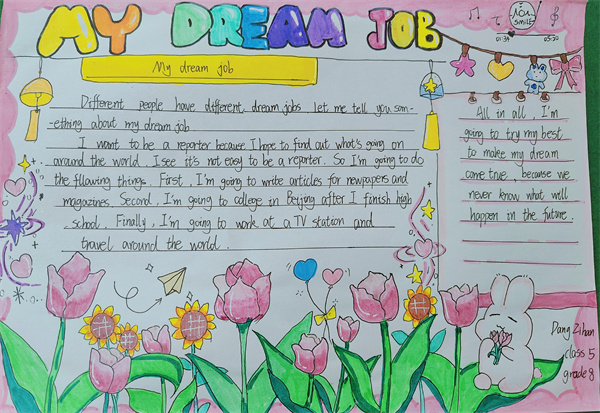 MY DREAM JOB
SMILE
01:39
03:30
My dream job
Different people have different dream jobs. Let me tell you som-
-ething about my dream job
I want to be a reporter because I hope to find out what's going on
around the world. I see it's not easy to be a reporter. So I'm going to do
the fllowing things. First, I'm going to write articles for newpapers and
magazines. Second, I'm going to college in Beijing after I finish high
school. Finally, I'm going to work at a TV station and
travel around the world.
All in all, I'm
going to try my best
to make my dream
come true, because we
never know what will
happen in the future.
Dang Zihan
class 5
grade 8